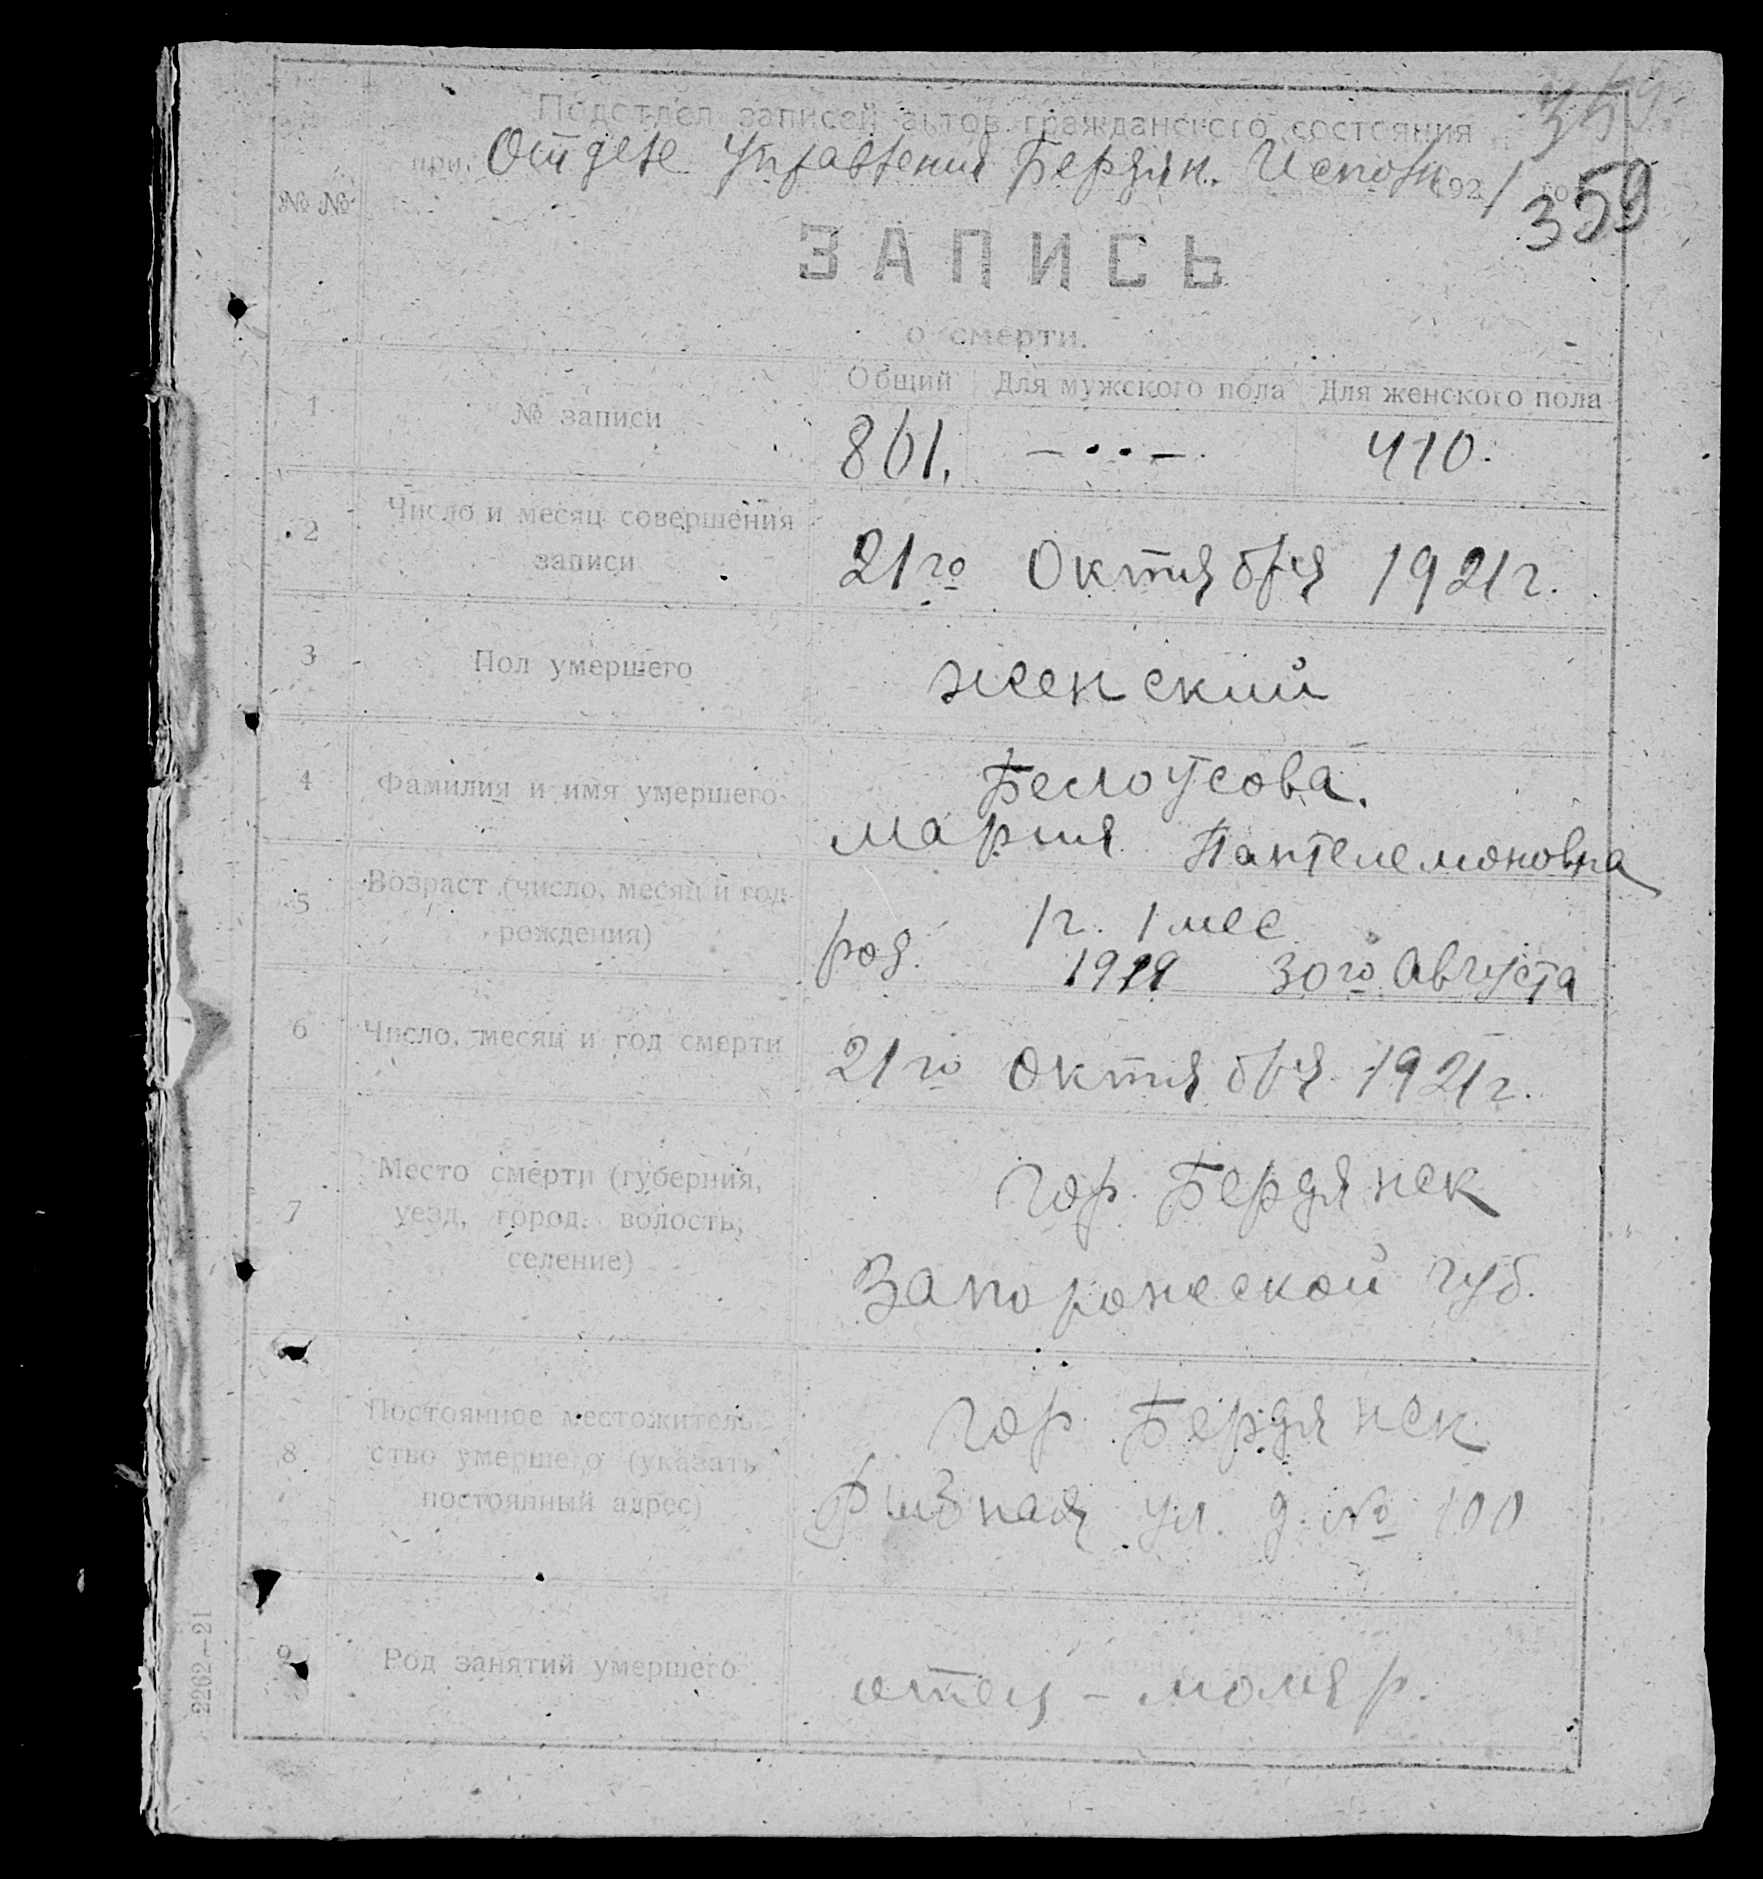 359.
Подотдел записей актов гражданского состояния
при Отделе Управления Бердян. Исполк 1921 го
359
№ №
ЗАПИСЬ
о смерти.
Общий Для мужского пола Для женского пола
1 № записи 861. — •• — 410.
2 Число и месяц совершения
записи
21го Октября 1921 г.
3 Пол умершего женский
4 Фамилия и имя умершего Белоусова.
Мария Пантелемоновна
5 Возраст (число, месяц и год
рождения)
1 г. 1 мес
род. 1919 30го Августа
6 Число, месяц и год смерти 21го Октября 1921 г.
7 Место смерти (губерния,
уезд, город, волость,
селение)
гор. Бердянск
Запорожеской губ.
8 Постоянное местожитель-
ство умершего (указать
постоянный адрес)
гор. Бердянск
ул. д. № 100
9 Род занятий умершего отец – моляр.
2262—21